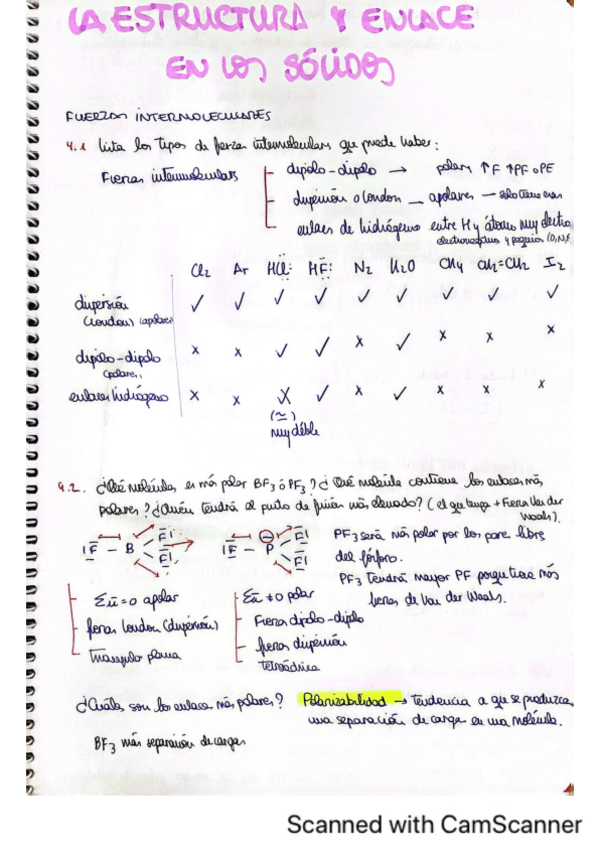 LA ESTRUCTURA Y ENLACE
EN LOS SÓLIDOS
FUERZAS INTERMOLECULARES
4.1 Lista los tipos de fuerzas intermoleculares que puede haber:
Fuerzas intermoleculares
dipolo-dipolo → polares ↑F ↑PF o PE
dispersión o London — apolares — solo tienen esas
enlaces de hidrógeno entre H y átomo muy electro
electronegativo y pequeño (O,N,F
Cl2 Ar HCl: HF: N2 H2O CH4 CH2=CH2 I2
dispersión ✓ ✓ ✓ ✓ ✓ ✓ ✓ ✓ ✓
(London) (apolares)
dipolo-dipolo x x ✓ ✓ x ✓ x x x
(polares)
enlaces hidrógeno x x X ✓ x ✓ x x x
(≃)
muy débil
4.2. ¿Qué molécula es más polar BF3 ó PF3? ¿Qué molécula contiene los enlaces más
polares? ¿Quién tendrá el punto de fusión más elevado? (el que tenga + Fuerza Van der
Waals).
F – B F F
F – P F F
PF3 será más polar por los pares libre
del fósforo.
PF3 tendrá mayor PF porque tiene más
fuerzas de Van der Waals.
Σū=0 apolar
fuerzas London (dispersión)
Triangulo plana
Σū≠0 polar
Fuerzas dipolo-dipolo
fuerzas dispersión
tetraédrica
¿Cuáles son los enlaces más polares? Polarizabilidad → Tendencia a que se produzca
una separación de carga en una molécula.
BF3 más separación de cargas
Scanned with CamScanner